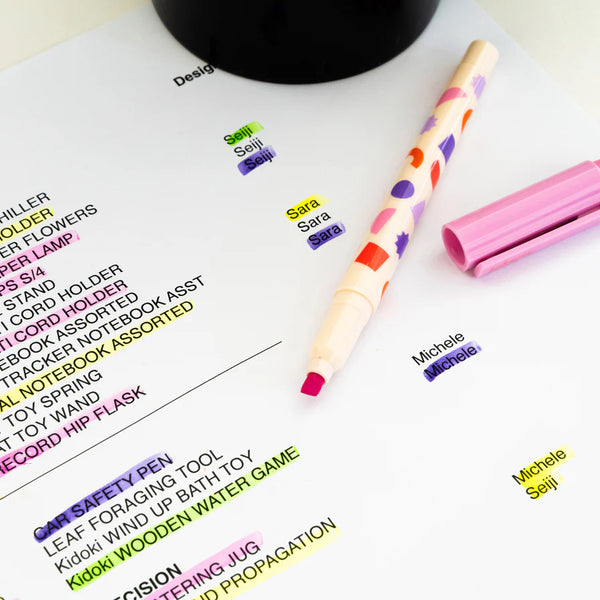 Desig
Seiji
Seiji
Seiji
Sara
Sara
Sara
HILLER
HOLDER
ER FLOWERS
PER LAMP
PS S/4
STAND
TI CORD HOLDER
TI CORD HOLDER
EBOOK ASSORTED
TRACKER NOTEBOOK ASST
AL NOTEBOOK ASSORTED
TOY SPRING
AT TOY WAND
RECORD HIP FLASK
Michele
Michele
CAR SAFETY PEN
LEAF FORAGING TOOL
Kidoki WIND UP BATH TOY
Kidoki WOODEN WATER GAME
Michele
Seiji
ECISION
TERING JUG
ND PROPAGATION